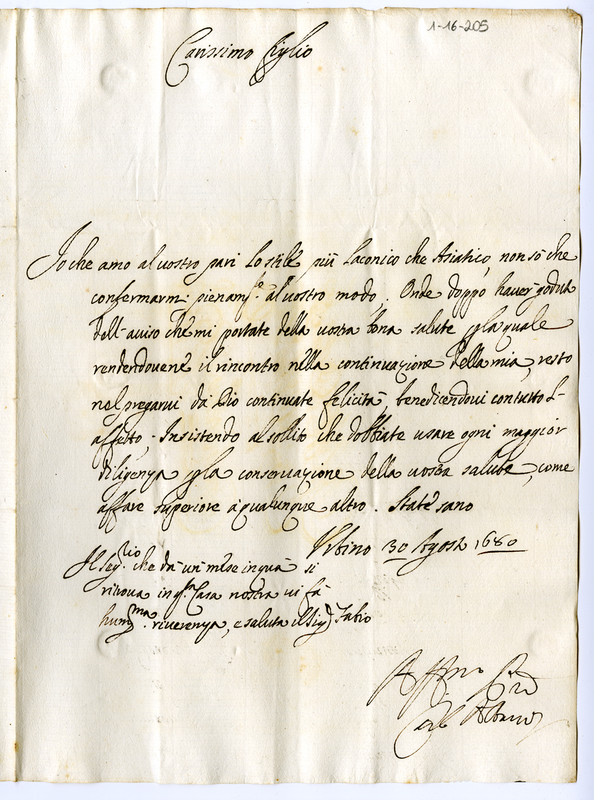 1-16-205
Carissimo Figlio
Io che amo al vostro pari lo stile più Laconico che Asiatico, non sò che
confermarmi pienamte. al vostro modo. Onde doppò haver goduto
dell'aviso che mi portate della vostra bona salute, p la quale
rendendovene il rincontro nella continuazione della mia, resto
nel pregarvi da Dio continuate felicità, benedicendovi con tutto l'
affetto. Insistendo al sollito che dobbiate usare ogni maggior
diligenza p la conservazione della vostra salute, come
affare superiore à qualunque altro. State sano
Urbino 30 Agosto 1680
Il Segrio. che da un mese in quà si
ritrova in qta. Casa nostra vi fà
hummma. riverenza, e saluta il Sigr. Fabio
Affmo
Albani